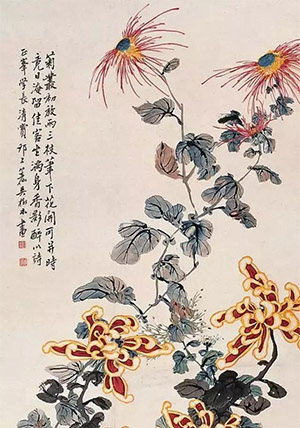 菊叢初放兩三枝筆下花開可并時
竟日淹留佳客坐滿身香影醉以詩
正峯学長清賞邗上蕉吳柏木畫